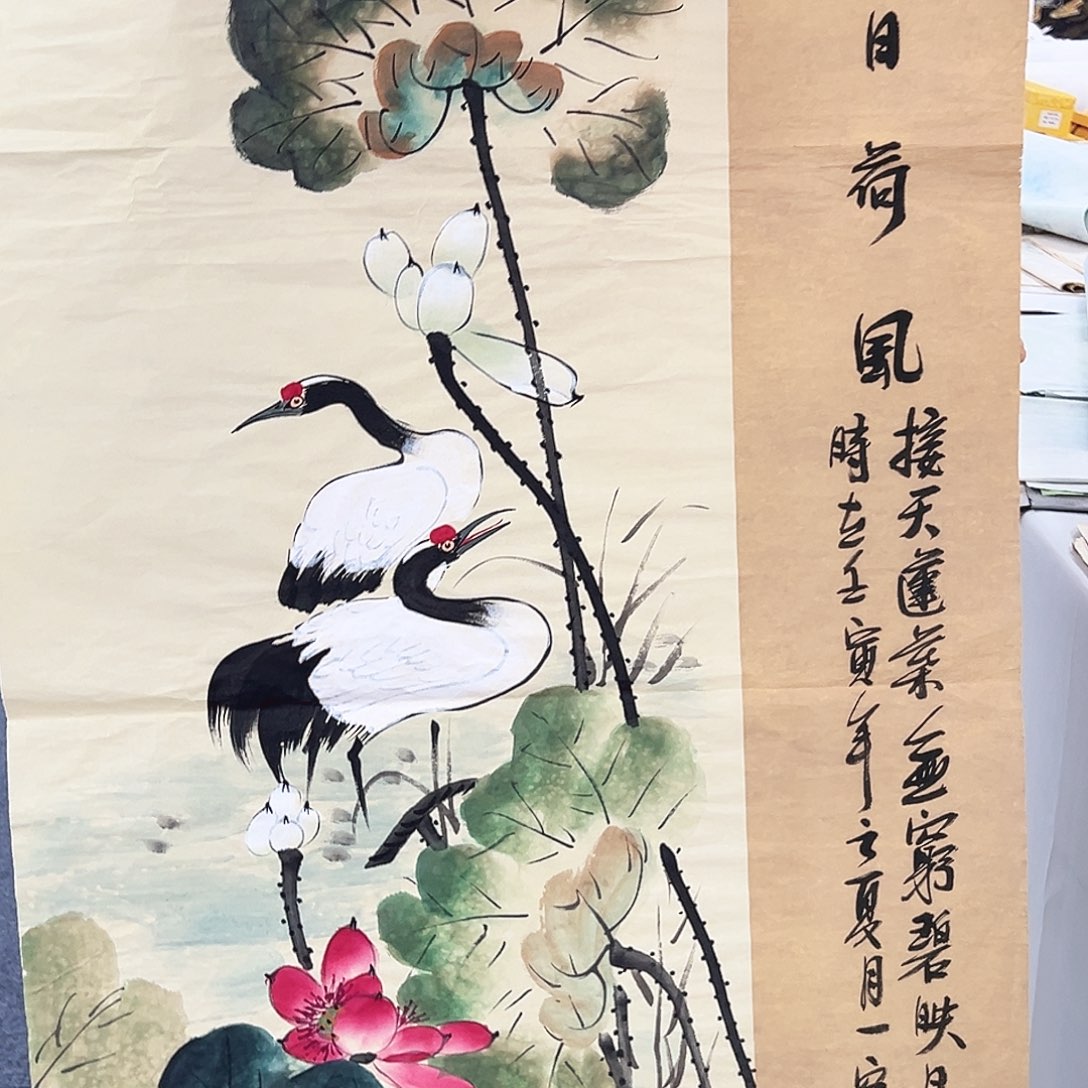 日荷風
接天蓮葉無窮碧映日
時在壬寅年之夏月一